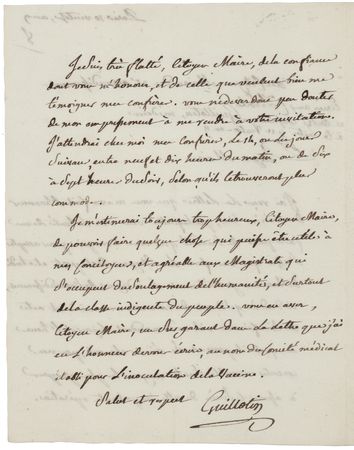 Je suis très flatté, Citoyen Maire, de la confiance
dont vous m'honorez, et de celle que veulent bien me
témoigner mes confrères. vous ne devez donc pas douter
de mon empressement à me rendre à votre invitation.
J'attendrai chez moi mes confrères, le 14, ou le jour
suivant, entre neuf et dix heures du matin, ou de six
à sept heures du soir, selon qu'ils le trouveront plus
commode.
Je m'estimerai toujours trop heureux, Citoyen Maire,
de pouvoir faire quelque chose qui puisse être utile à
mes concitoyens, et agréable aux Magistrats qui
s'occupent du soulagement de l'humanité, et surtout
de la classe indigente du peuple. vous en avez,
Citoyen Maire, un sûr garant dans la lettre que j'ai
eu l'honneur de vous écrire, au nom du Comité médical
établi pour l'inoculation de la Vaccine.
Salut et respect
Guillotin